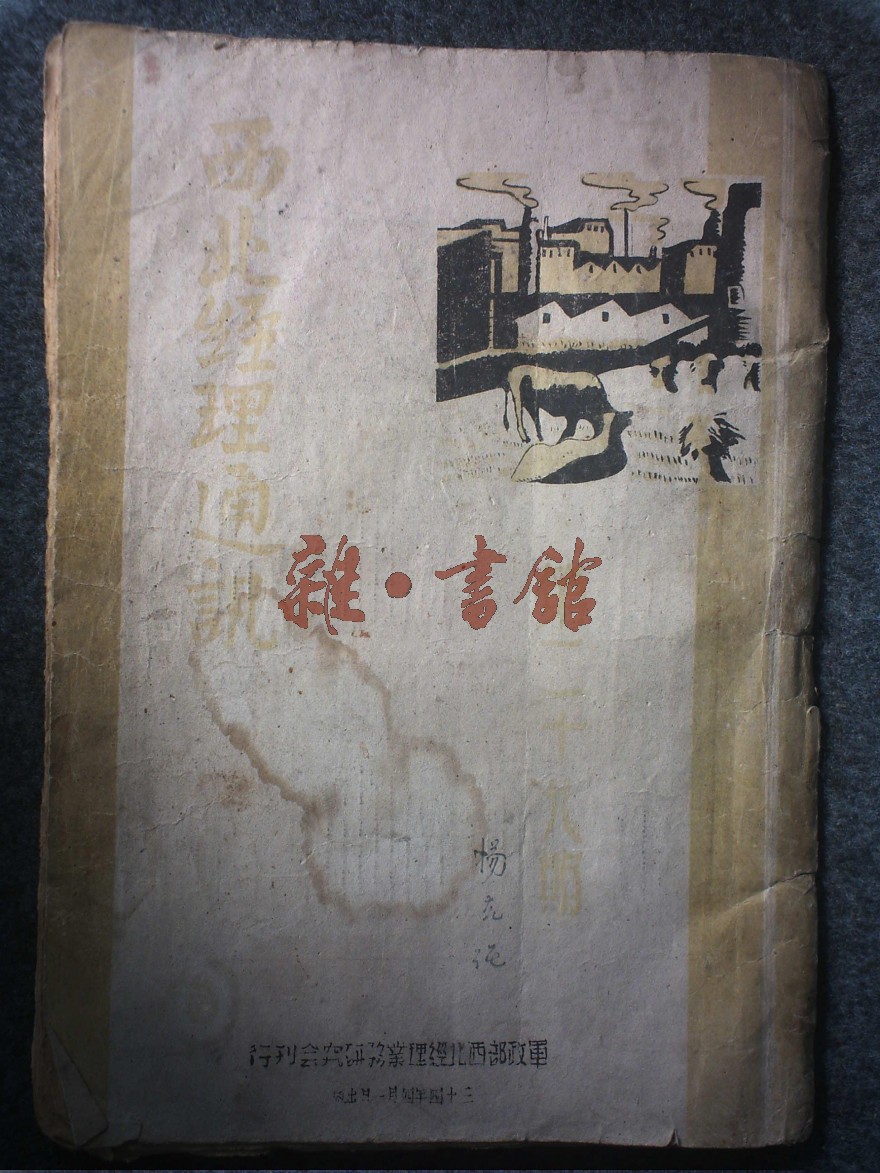 西北經理通訊
第二十九期
雜·書館
軍政部西北經理業務研究会刊行
三十四年四月一日出版